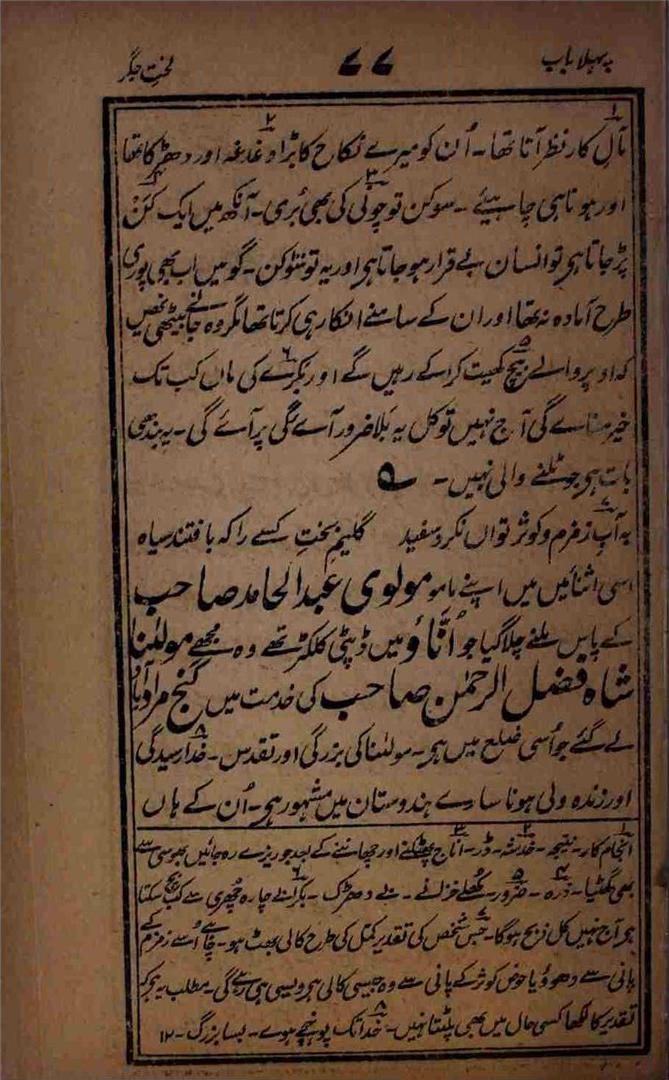 پہلا باب ۷۷ لختِ جگر
مآل کار نظر آتا تھا۔ اُن کو میرے نکاح کا بڑا دغدغہ اور دھڑکا تھا
اور ہونا ہی چاہیئے۔ سوکن تو چونی کی بھی بُری۔ آنکھ میں ایک کنَکْ
پڑ جاتا ہی تو انسان بے قرار ہو جاتا ہی اور یہ تو تھی سوکن۔ گو میں اب بھی پوری
طرح آمادہ نہ تھا اور ان کے سامنے انکار ہی کرتا تھا مگر وہ جانے بیٹھی تھیں
کہ اوپر والے بیچ کھیت کرا کے رہیں گے اور بکرے کی ماں کب تک
خیر منائے گی آج نہیں تو کل یہ بَلا ضرور آے گی پر آئے گی۔ یہ بندھی
بات ہی جو ٹلنے والی نہیں۔ ؎
بہ آبِ زمزم و کوثر تواں نکرد سفید گلیمِ بختِ کسے را کہ بافتند سیاہ
اسی اثنا میں میں اپنے ماموں مولوی عبد الحامد صاحب
کے پاس ملنے چلا گیا جو اُنّاؤ میں ڈپٹی کلکٹر تھے وہ مجھے مولٰنا
شاہ فضل الرحمٰن صاحب کی خدمت میں گنج مرادآباد
لے گئے جو اُسی ضلع میں ہی۔ مولٰنا کی بزرگی اور تقدس۔ خدا رسیدگی
اور زندہ ولی ہونا سارے ہندوستان میں مشہور ہی۔ اُن کے ہاں
۱ انجام کار۔ نتیجہ۔ ۲ خدشہ۔ ڈر۔ ۳ اناج پھٹکنے اور چھاننے کے بعد جو ریزے رہ جائیں بھوسی سے
بھی گھٹیا۔ ۴ ذرہ۔ ۵ ضرور۔ کھلے خزانے۔ بے دھڑک۔ ۶ بکرا بے چارہ چھری سے کب بچ سکتا
ہی آج نہیں کل ذبح ہوگا۔ ۷ جس شخص کی تقدیر کمل کی طرح کالی بھٹ ہو۔ چاہے اُسے زمزم کے
پانی سے دھوؤ یا حوض کوثر کے پانی سے وہ جیسی کالی ہی ویسی ہی رہے گی۔ مطلب یہ ہی کہ
تقدیر کا لکھا کسی حال میں بھی پلٹتا نہیں۔ ۸ خدا تک پونہچے ہوے۔ بسا بزرگ۔ ۱۲